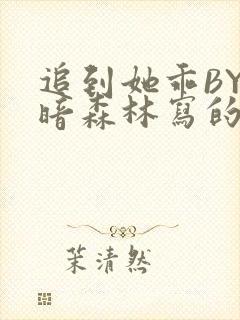 追到她乖BY
暗森林寫的
茉清然